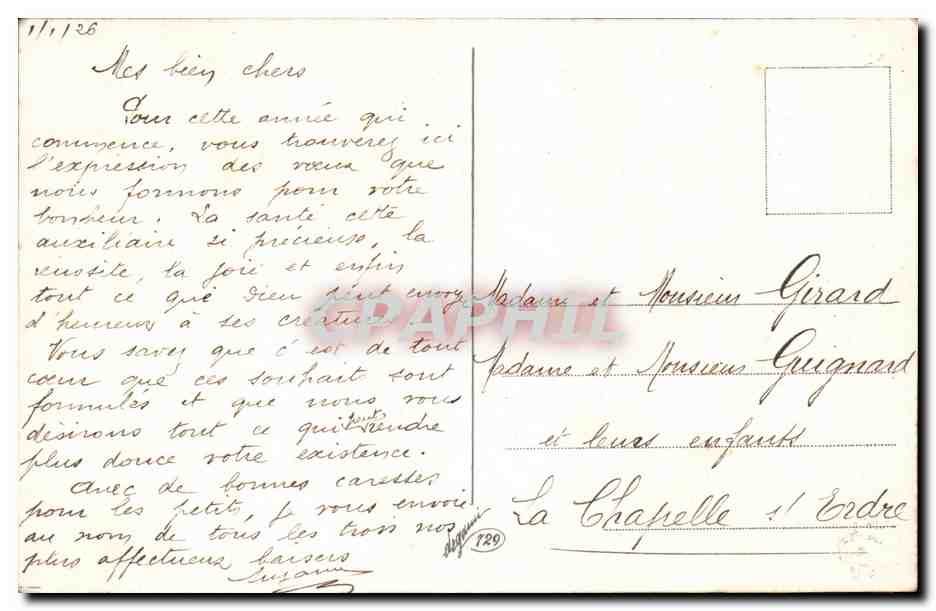 1/1/26
Mes bien chers
Pour cette année qui
commence, vous trouverez ici
l'expression des vœux que
nous formons pour votre
bonheur. La santé cette
auxiliaire si précieuse, la
réussite, la joie et enfin
tout ce que Dieu peut envoy
d'heureux à ses créatures.
Vous savez que c'est de tout
cœur que ces souhait sont
formulés et que nous vous
désirons tout ce qui peut rendre
plus douce votre existence.
Avec de bonnes caresses
pour les petits, je vous envoie
au nom de tous les trois nos
plus affectueux baisers
Suzanne
Madame et Monsieur Girard
Madame et Monsieur Guignard
et leurs enfants
La Chapelle s/ Erdre
129
CPAPHIL